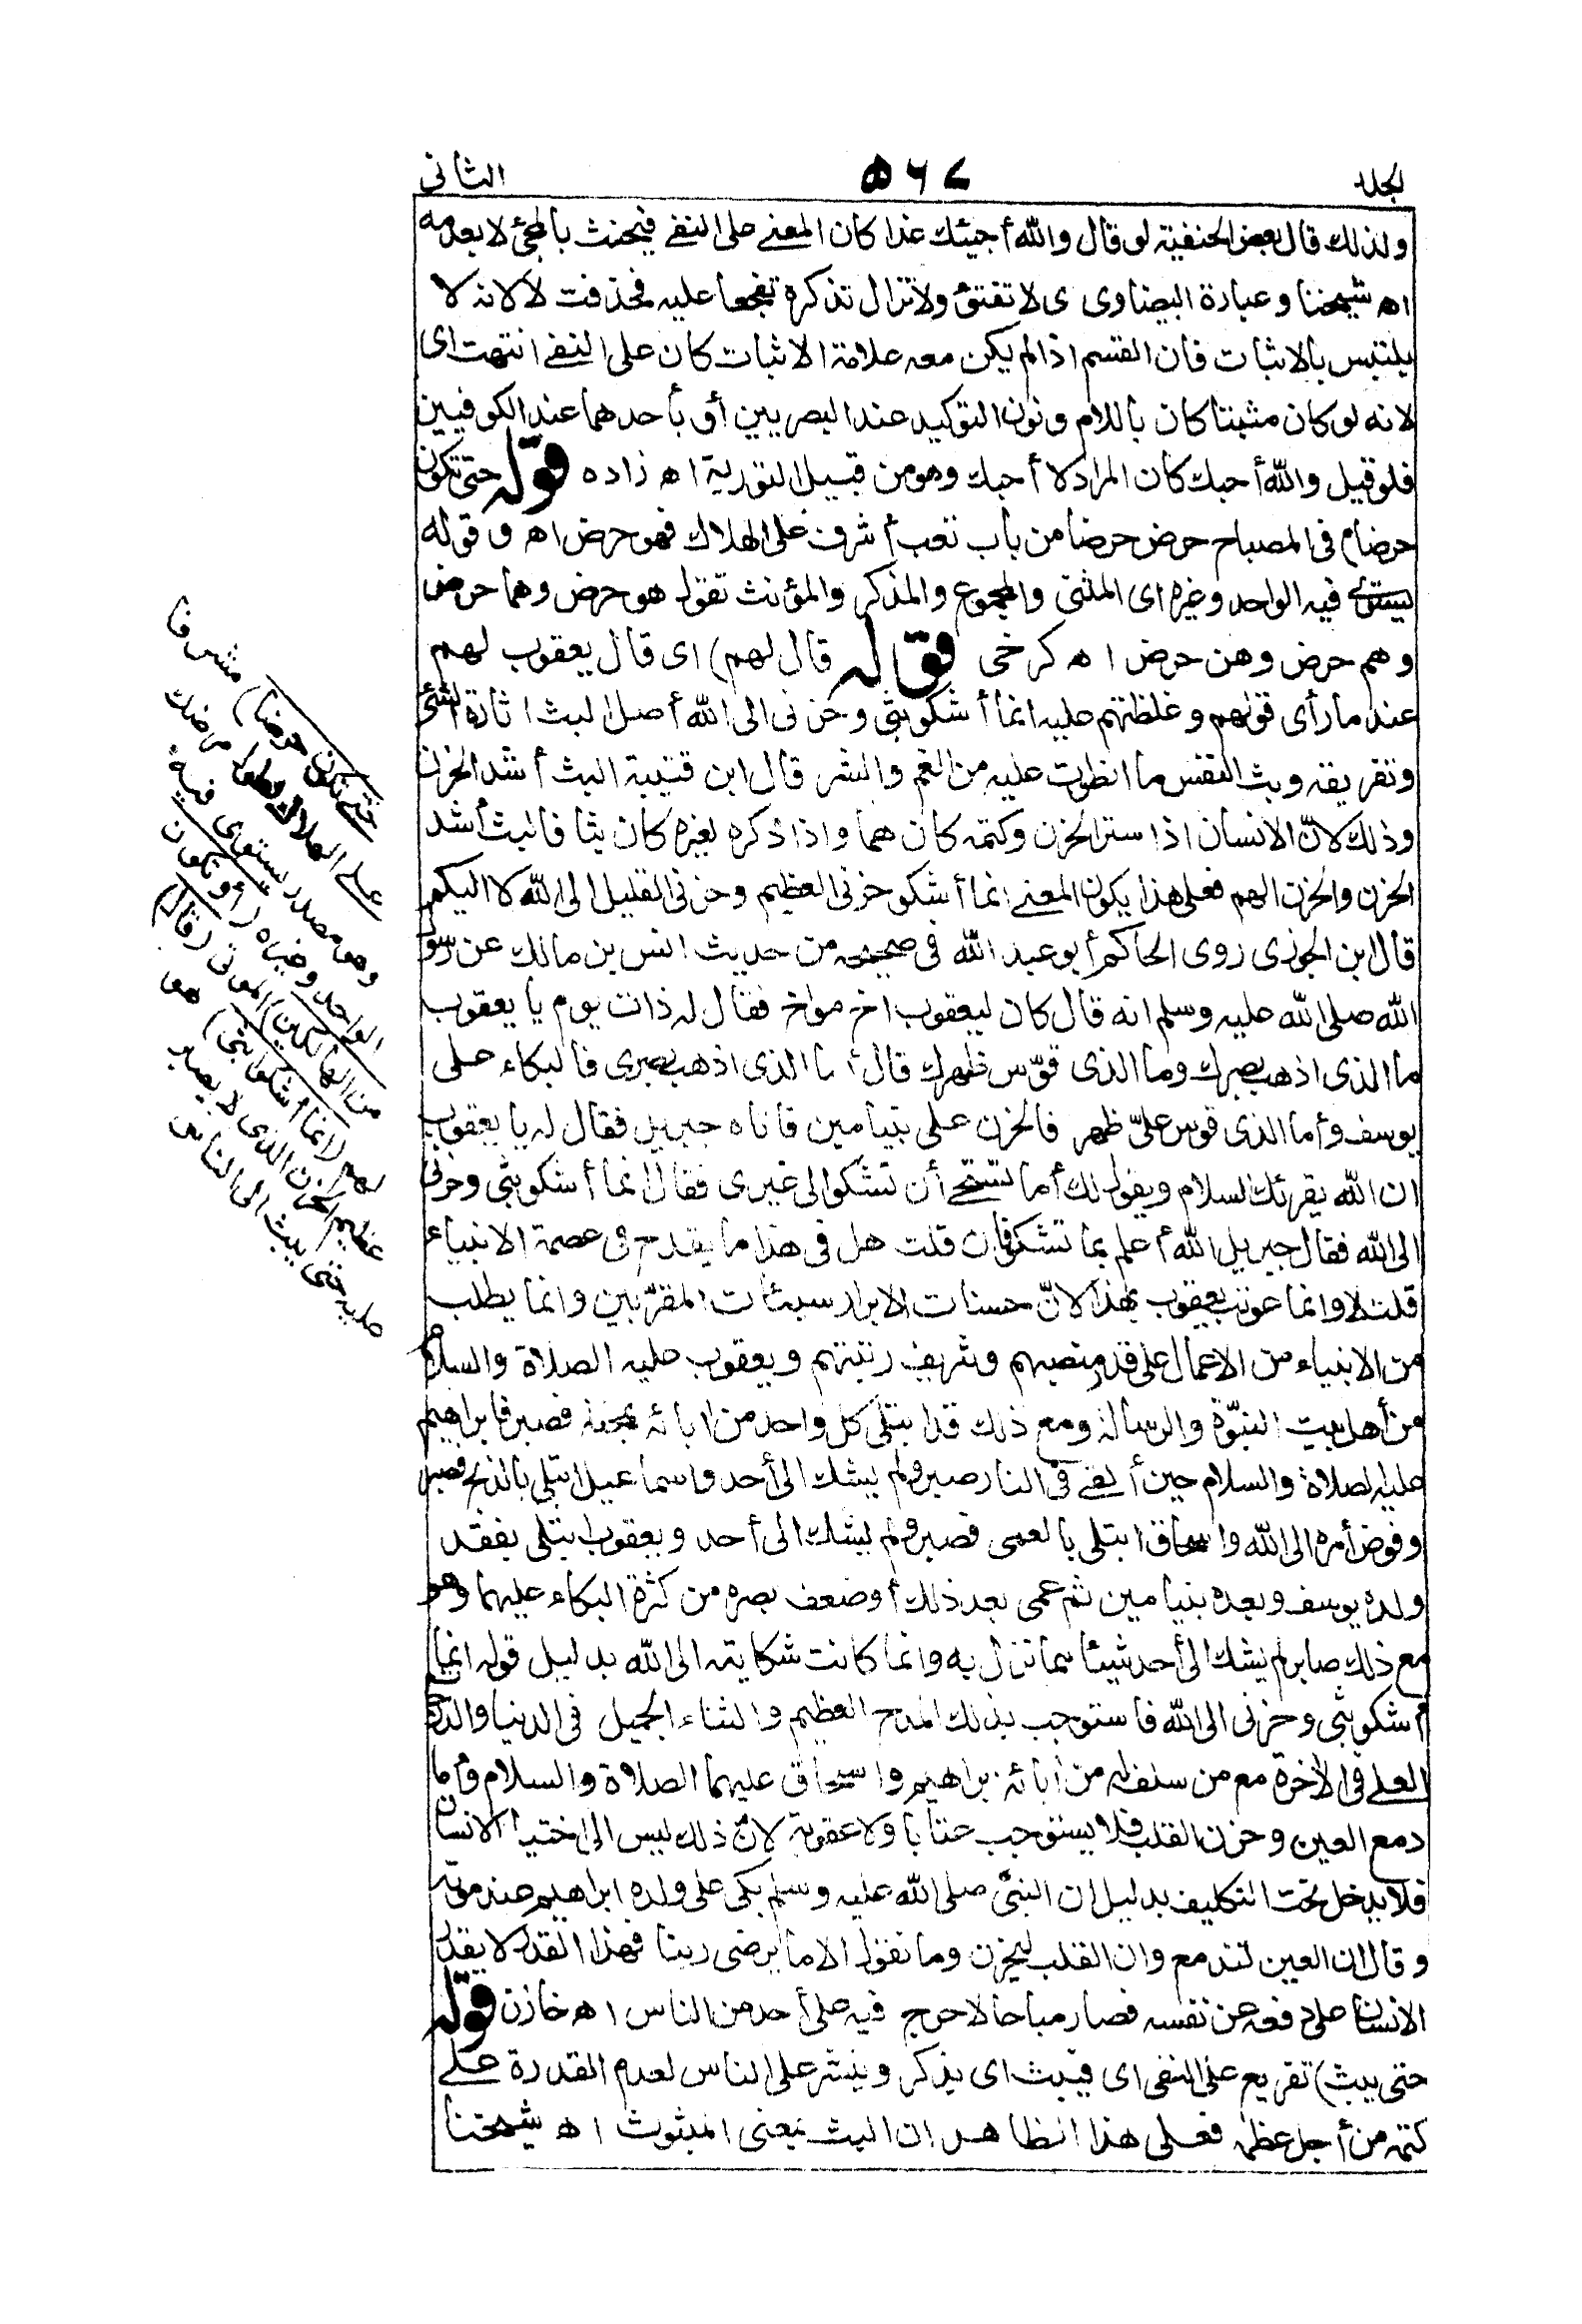 الجلد ٥٦٧ الثانى
ولذلك قال بعض الحنفية لو قال والله أجيئك غدا كان المعنى على النفى فيحنث بالمجئ لا بعدمه
اه شيخنا وعبارة البيضاوى ى لا تفتؤ ولا تزال تذكره تفجعا عليه فحذفت لا لانه لا
يلتبس بالاثبات فان القسم اذا لم يكن معه علامة الاثبات كان على النفى انتهت اى
لانه لو كان مثبتا كان باللام ونون التوكيد عند البصريين أو بأحدهما عند الكوفيين
فلو قيل والله أحبك كان المراد لا أحبك وهو من قبيل التورية اه زاده قوله حتى تكون
حرضا) فى المصباح حرض حرضا من باب تعب أشرف على الهلاك فهو حرض اه وقوله
يستوى فيه الواحد وغيره اى المثنى والمجموع والمذكر والمؤنث تقول هو حرض وهما حرض
وهم حرض وهن حرض اه كرخى قوله قال لهم) اى قال يعقوب لهم
عند ما رأى قولهم وغلظتهم عليه انما أشكو بثى وحزنى الى الله أصل البث اثارة الشئ
وتفريقه وبث النفس ما انطوت عليه من الغم والشر قال ابن قتيبة البث أشد الحزن
وذلك لانّ الانسان اذا ستر الحزن وكتمه كان هما واذا ذكره لغيره كان بثا فالبث أشد
الحزن والحزن الهم فعلى هذا يكون المعنى انما أشكو حزنى العظيم وحزنى القليل الى الله لا اليكم
قال ابن الجوزى روى الحاكم أبو عبد الله فى صحيحه من حديث انس بن مالك عن رسول
الله صلى الله عليه وسلم انه قال كان ليعقوب اخ مواخ فقال له ذات يوم يا يعقوب
ما الذى اذهب بصرك وما الذى قوّس ظهرك قال أما الذى اذهب بصرى فالبكاء على
يوسف وأما الذى قوس علىّ ظهر فالحزن على بنيامين فاتاه جبريل فقال له يا يعقوب
ان الله يقرئك السلام ويقول لك أما تستحى أن تشكو الى غيرى فقال انما أشكو بثى وحزنى
الى الله فقال جبريل الله أعلم بما تشكو فان قلت هل فى هذا ما يقدح فى عصمة الانبياء
قلت لا وانما عوتب يعقوب بهذا لانّ حسنات الابرار سيئات المقرّبين وانما يطلب
من الانبياء من الاعمال على قدر منصبهم وشريف رتبتهم ويعقوب عليه الصلاة والسلام
من أهل بيت النبوّة والرسالة ومع ذلك قد ابتلى كل واحد من ابائه بمحنة فصبر فابراهيم
عليه الصلاة والسلام حين ألقى فى النار صبر ولم يشك الى أحد واسماعيل ابتلى بالذبح فصبر
وفوض أمره الى الله واسحاق ابتلى بالعمى فصبر ولم يشك الى أحد ويعقوب ابتلى بفقد
ولده يوسف وبعده بنيامين ثم عمى بعد ذلك أو ضعف بصره من كثرة البكاء عليهما وهو
مع ذلك صابر لم يشك الى أحد شيئا مما نزل به وانما كانت شكايته الى الله بدليل قوله انما
أشكو بثى وحزنى الى الله فاستوجب بذلك المدح العظيم والثناء الجميل فى الدنيا والدرج
العلى فى الاخرة مع من سلف له من أبائه ابراهيم واسحاق عليهما الصلاة والسلام وأما
دمع العين وحزن القلب فلا يستوجب عتابا ولا عقوبة لانّ ذلك ليس الى اختيار الانسان
فلا يدخل تحت التكليف بدليل ان النبىّ صلى الله عليه وسلم بكى على ولده ابراهيم عند موته
وقال ان العين لتدمع وان القلب ليحزن وما نقول الا ما يرضى ربنا فهذا القدر لا يقدر
الانسان على دفعه عن نفسه فصار مباحا لا حرج فيه على أحد من الناس اه خازن قوله
حتى يبث) تفريع على النفى اى فيبث اى يذكر وينشر على الناس لعدم القدرة على
كتمه من أجل عظمه فعلى هذا الظاهر ان البث بمعنى المبثوث اه شيخنا
حتى تكون حرضا) مشرفا
على الهلاك لطول مرضك
وهو مصدر يستوى فيه
الواحد وغيره (أو تكون
من الهالكين) الموتى (قال)
لهم (انما أشكو بثى) هو
عظيم الحزن الذى لا يصبر
عليه حتى يبث الى الناس